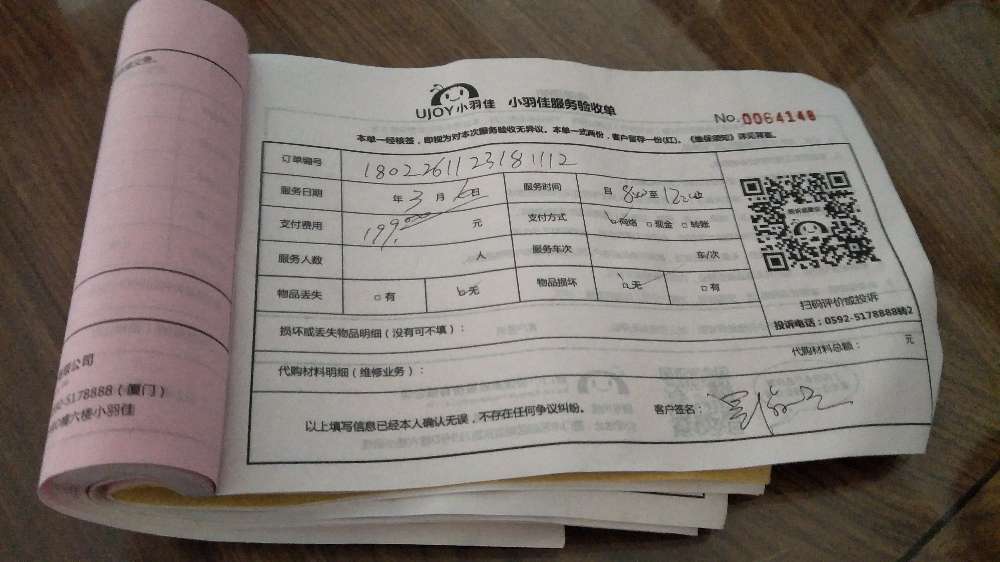 UJOY小羽佳 小羽佳服务验收单
No.0064148
本单一经核签，即视为对本次服务验收无异议。本单一式两份，客户暂存一份(红)。《维保须知》详见背面。
订单编号 180226112318 1112
服务日期 年 3 月 日 服务时间 自 8:00 至 12:00
支付费用 199. 元 支付方式 □网络 □现金 □转账
服务人数 人 服务车次 车/次
物品丢失 □有 □无 物品损坏 □无 □有
扫码评价或投诉
投诉电话：0592-5178888转2
损坏或丢失物品明细（没有可不填）：
代购材料明细（维修业务）： 代购材料总额： 元
以上填写信息已经本人确认无误，不存在任何争议纠纷。 客户签名：
限公司
-5178888（厦门）
楼六楼小羽佳